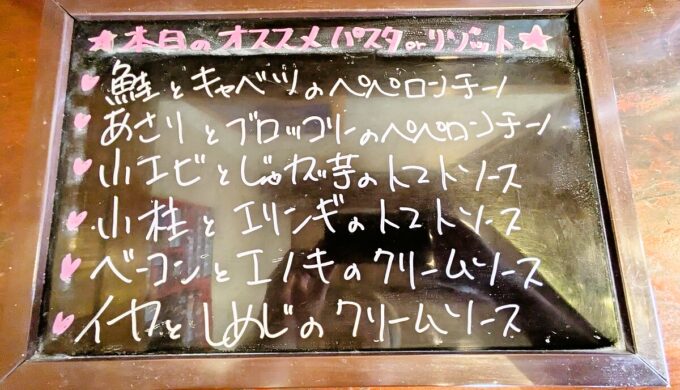 ★本日のオススメパスタorリゾット★
鮭とキャベツのペペロンチーノ
あさりとブロッコリーのペペロンチーノ
小エビとじゃガ芋のトマトソース
小柱とエリンギのトマトソース
ベーコンとエノキのクリームソース
イカとしめじのクリームソース